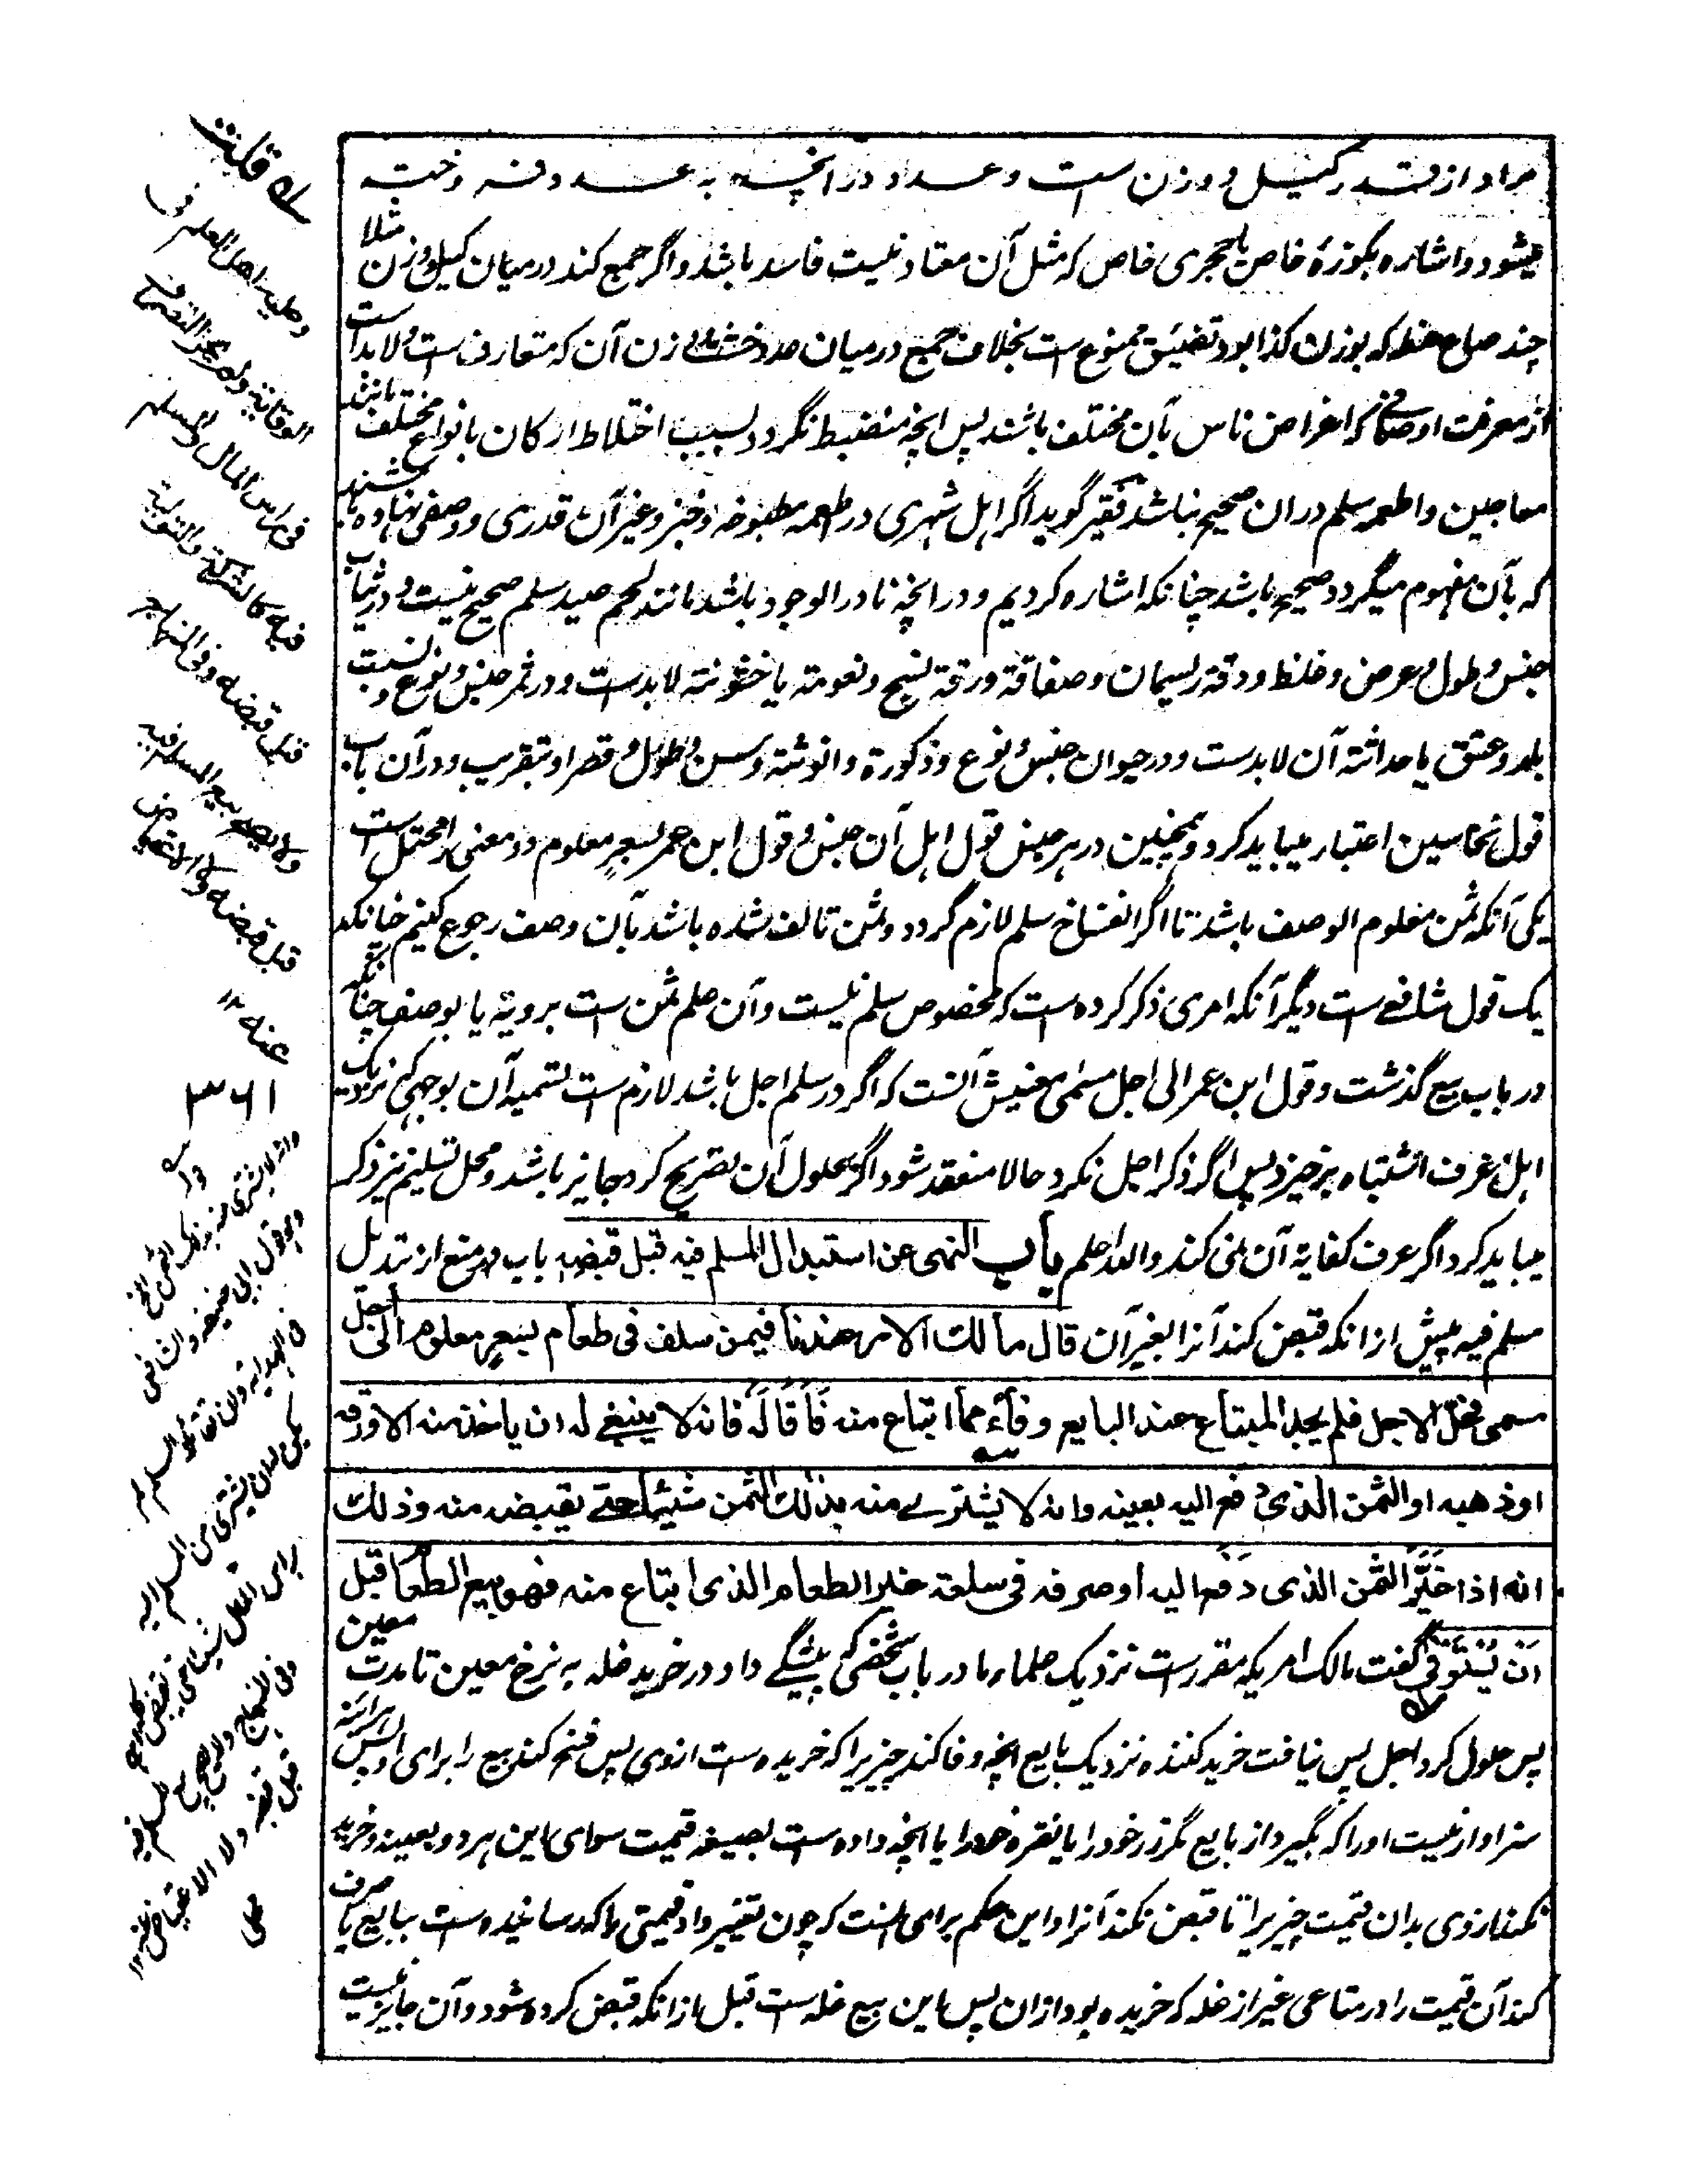 مراد از قدر کیل و وزن است و عدد در انچه به عدد فروخته
میشود و اشاره بکوزهٔ خاص یا حجری خاص که مثل آن معتاد نیست فاسد باشد و اگر جمع کند در میان کیل و وزن مثلا
چند صاع حنطه که بوزن کذا بود تضییق ممنوع است بخلاف جمع در میان عدد خشت و وزن آن که متعارف است و لابد است
از معرفت اوصافی که اغراض ناس بآن مختلف باشند پس انچه منضبط نگردد بسبب اختلاط ارکان بانواع مختلف مانند
معاجین و اطعمه سلم دران صحیح نباشد فقیر گوید اگر اهل شهری در اطعمه مطبوخه و خبز و غیر آن قدری و وصفی نهاده باشند
که بآن مفهوم میگردد صحیح باشد چنانکه اشاره کردیم و در انچه نادر الوجود باشد مانند لحم صید سلم صحیح نیست و در ثیاب
جنس و طول و عرض و غلظ و دقة ریسمان و صفاقة و رقة نسج و نعومة یا خشونة لابدست و در تمر جنس و نوع و نسبت
بلد و عتق یا حداثة آن لابدست و در حیوان جنس و نوع و ذکورة و انوثة و سن و طول و قصر او بتقریب و در آن باب
قول نخاسین اعتبار میباید کرد و همچنین در هر جنس قول اهل آن جنس و قول ابن عمر بسعرٍ معلوم دو معنی را محتمل است
یکی آنکه ثمن معلوم الوصف باشد تا اگر انفساخ سلم لازم گردد و ثمن تالف شده باشد بآن وصف رجوع کنیم چنانکه
یک قول شافعے است دیگر آنکه امری ذکر کرده است که مخصوص سلم نیست و آن علم ثمن ست برویة یا بوصف چنانکه
در باب بیع گذشت و قول ابن عمر الی اجل مسمی معنیش آنست که اگر در سلم اجل باشد لازم ست تسمیه آن بوجهی که نزدیک
اهل عرف اشتباه برخیزد پس اگر ذکر اجل نکرد حالا منعقد شود و اگر بحلول آن تصریح کرد جایز باشد و محل تسلیم نیز ذکر
میباید کرد اگر عرف کفایة آن نمی کند والله اعلم باب النهی عن استبدال المسلم فیه قبل قبضه باب در منع از تبدیل
مسلم فیه پیش ازانکه قبض کند آنرا بغیر آن قال مالك الامر عندنا فیمن سلف فی طعام بسعرٍ معلوم الی اجلٍ
مسمی فحلّ الاجل فلم یجد المبتاع عند البایع وفاءً مما ابتاع منه فَاَقَالَهُ فانه لا ینبغی له ان یاخذ منه الا ورقه
او ذهبه او الثمن الذی دفع الیه بعینه وانه لا یشتری منه بذلك الثمن شیئا حتے یقبضه منه وذلك
انه اذا غَیَّرَ الثمن الذی دَفَعَ الیه او صرفه فی سلعة غیر الطعام الذی ابتاع منه فهو بیع الطعام قبل
اَنْ یُسْتَوْفٰی گفت مالک امریکه مقررست نزدیک علماء ما در باب شخصی که پیشگے داد در خرید غله به نرخ معین تا مدت معین
پس حلول کرد اجل پس نیافت خرید کننده نزدیک بایع انچه وفا کند چیزیرا که خریده ست ازوی پس فسخ کند بیع را برای او پس هر آئنه
سزاوار نیست او را که بگیرد از بایع مگر زر خود را یا نقره خود را یا انچه داده ست بصیغه قیمت سوای این هر دو بعینه و خرید
نکند ازوی بدان قیمت چیزیرا تا قبض نکند آنرا و این حکم برای آنست که چون تغییر داد قیمتی را که رسانیده ست ببایع یا صرف
کند آن قیمت را در متاعی غیر از غله که خریده بود ازان پس این بیع غله ست قبل ازانکه قبض کرده شود و آن جایز نیست
له قلت
وعلیه اهل العلم فی
الوقایة ولم یجز التصرف
فی راس المال والمسلم
فیه کالشرکة والتولیة
قبل قبضه وفی المنهاج
ولا یصح بیع المسلم فیه
قبل قبضه ولا الاعتیاض
عنه ۱۲
۳۶۱
وانه لا یشتری منه بذلک الثمن الخ
وهو قول ابی حنیفة والشافعی
فی الهدایة وان تقایلا السلم لم
یکن له ان یشتری من المسلم الیه
براس المال شیئا حتی یقبضه کله
وفی المنهاج ولا یصح بیع المسلم فیه
قبل قبضه ولا الاعتیاض عنه ۱۲